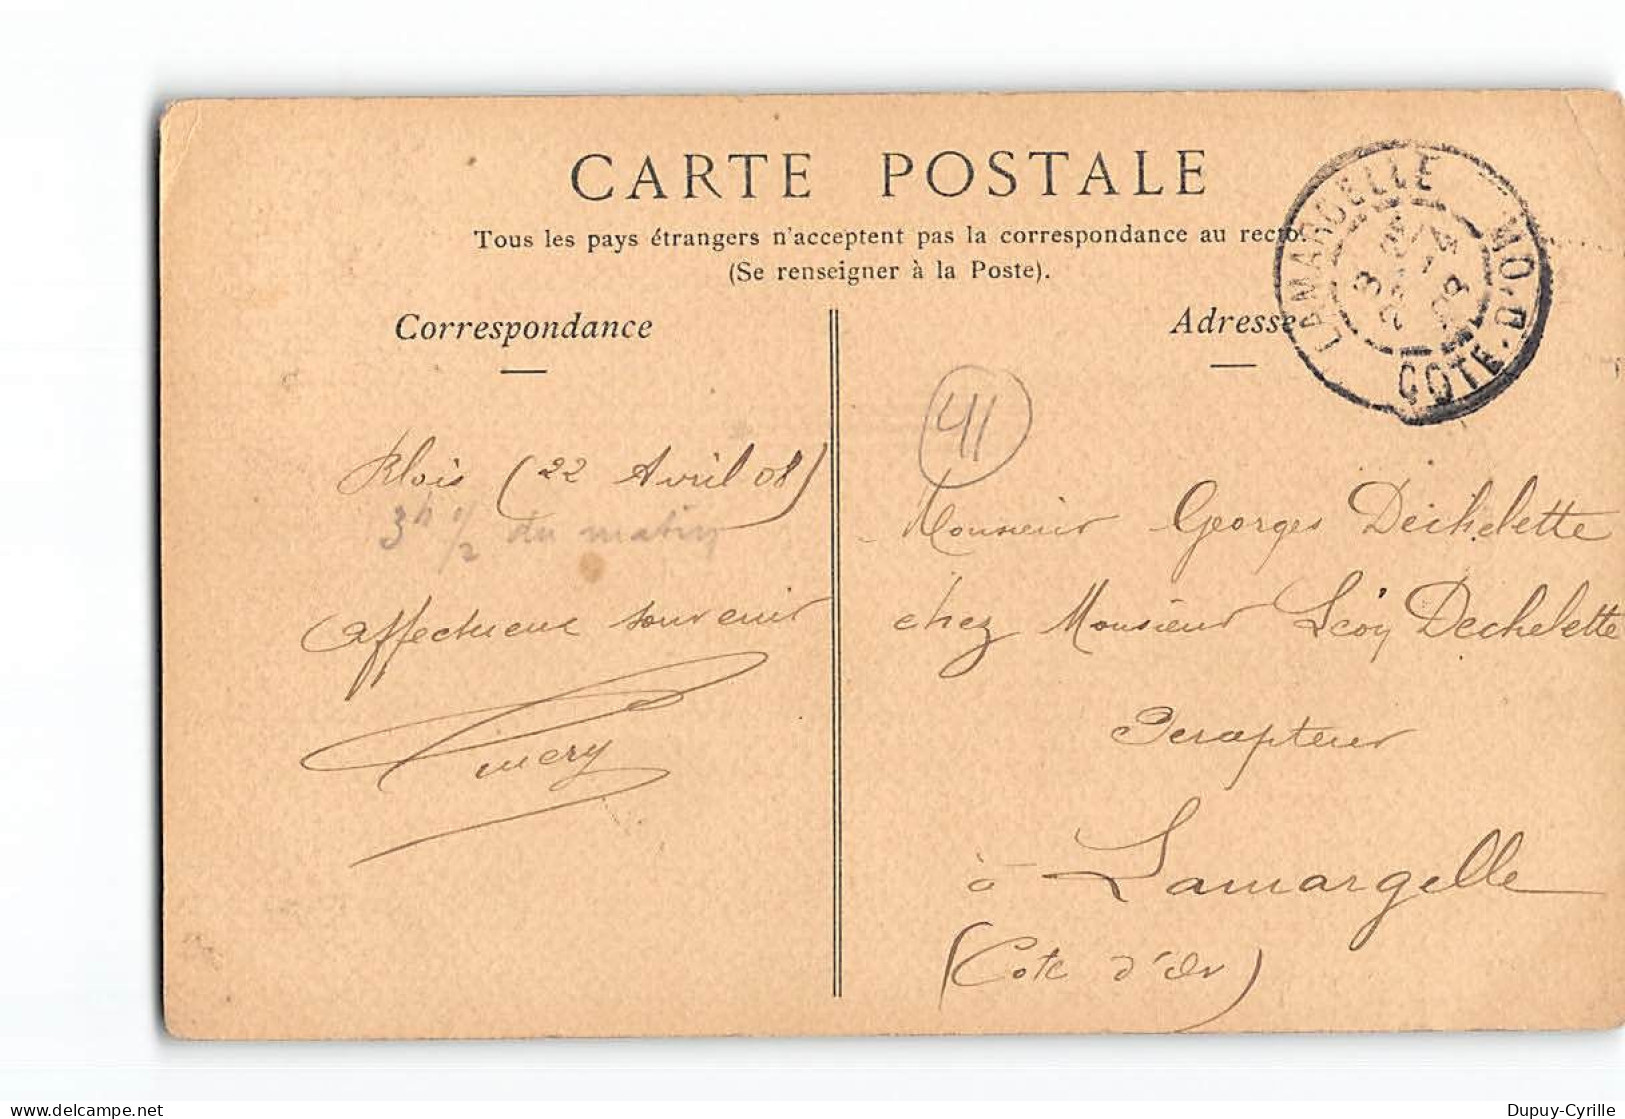 CARTE POSTALE
Tous les pays étrangers n'acceptent pas la correspondance au recto.
(Se renseigner à la Poste).
Correspondance
Adresse
LAMARGELLE
COTE-D'OR
41
Blois (22 Avril 08)
3h 1/2 du matin
affectueux souvenir
Monsieur Georges Dechelette
chez Monsieur Léon Dechelette
Percepteur
à Lamargelle
(Cote d'Or)
Dupuy-Cyrille
www.delcampe.net